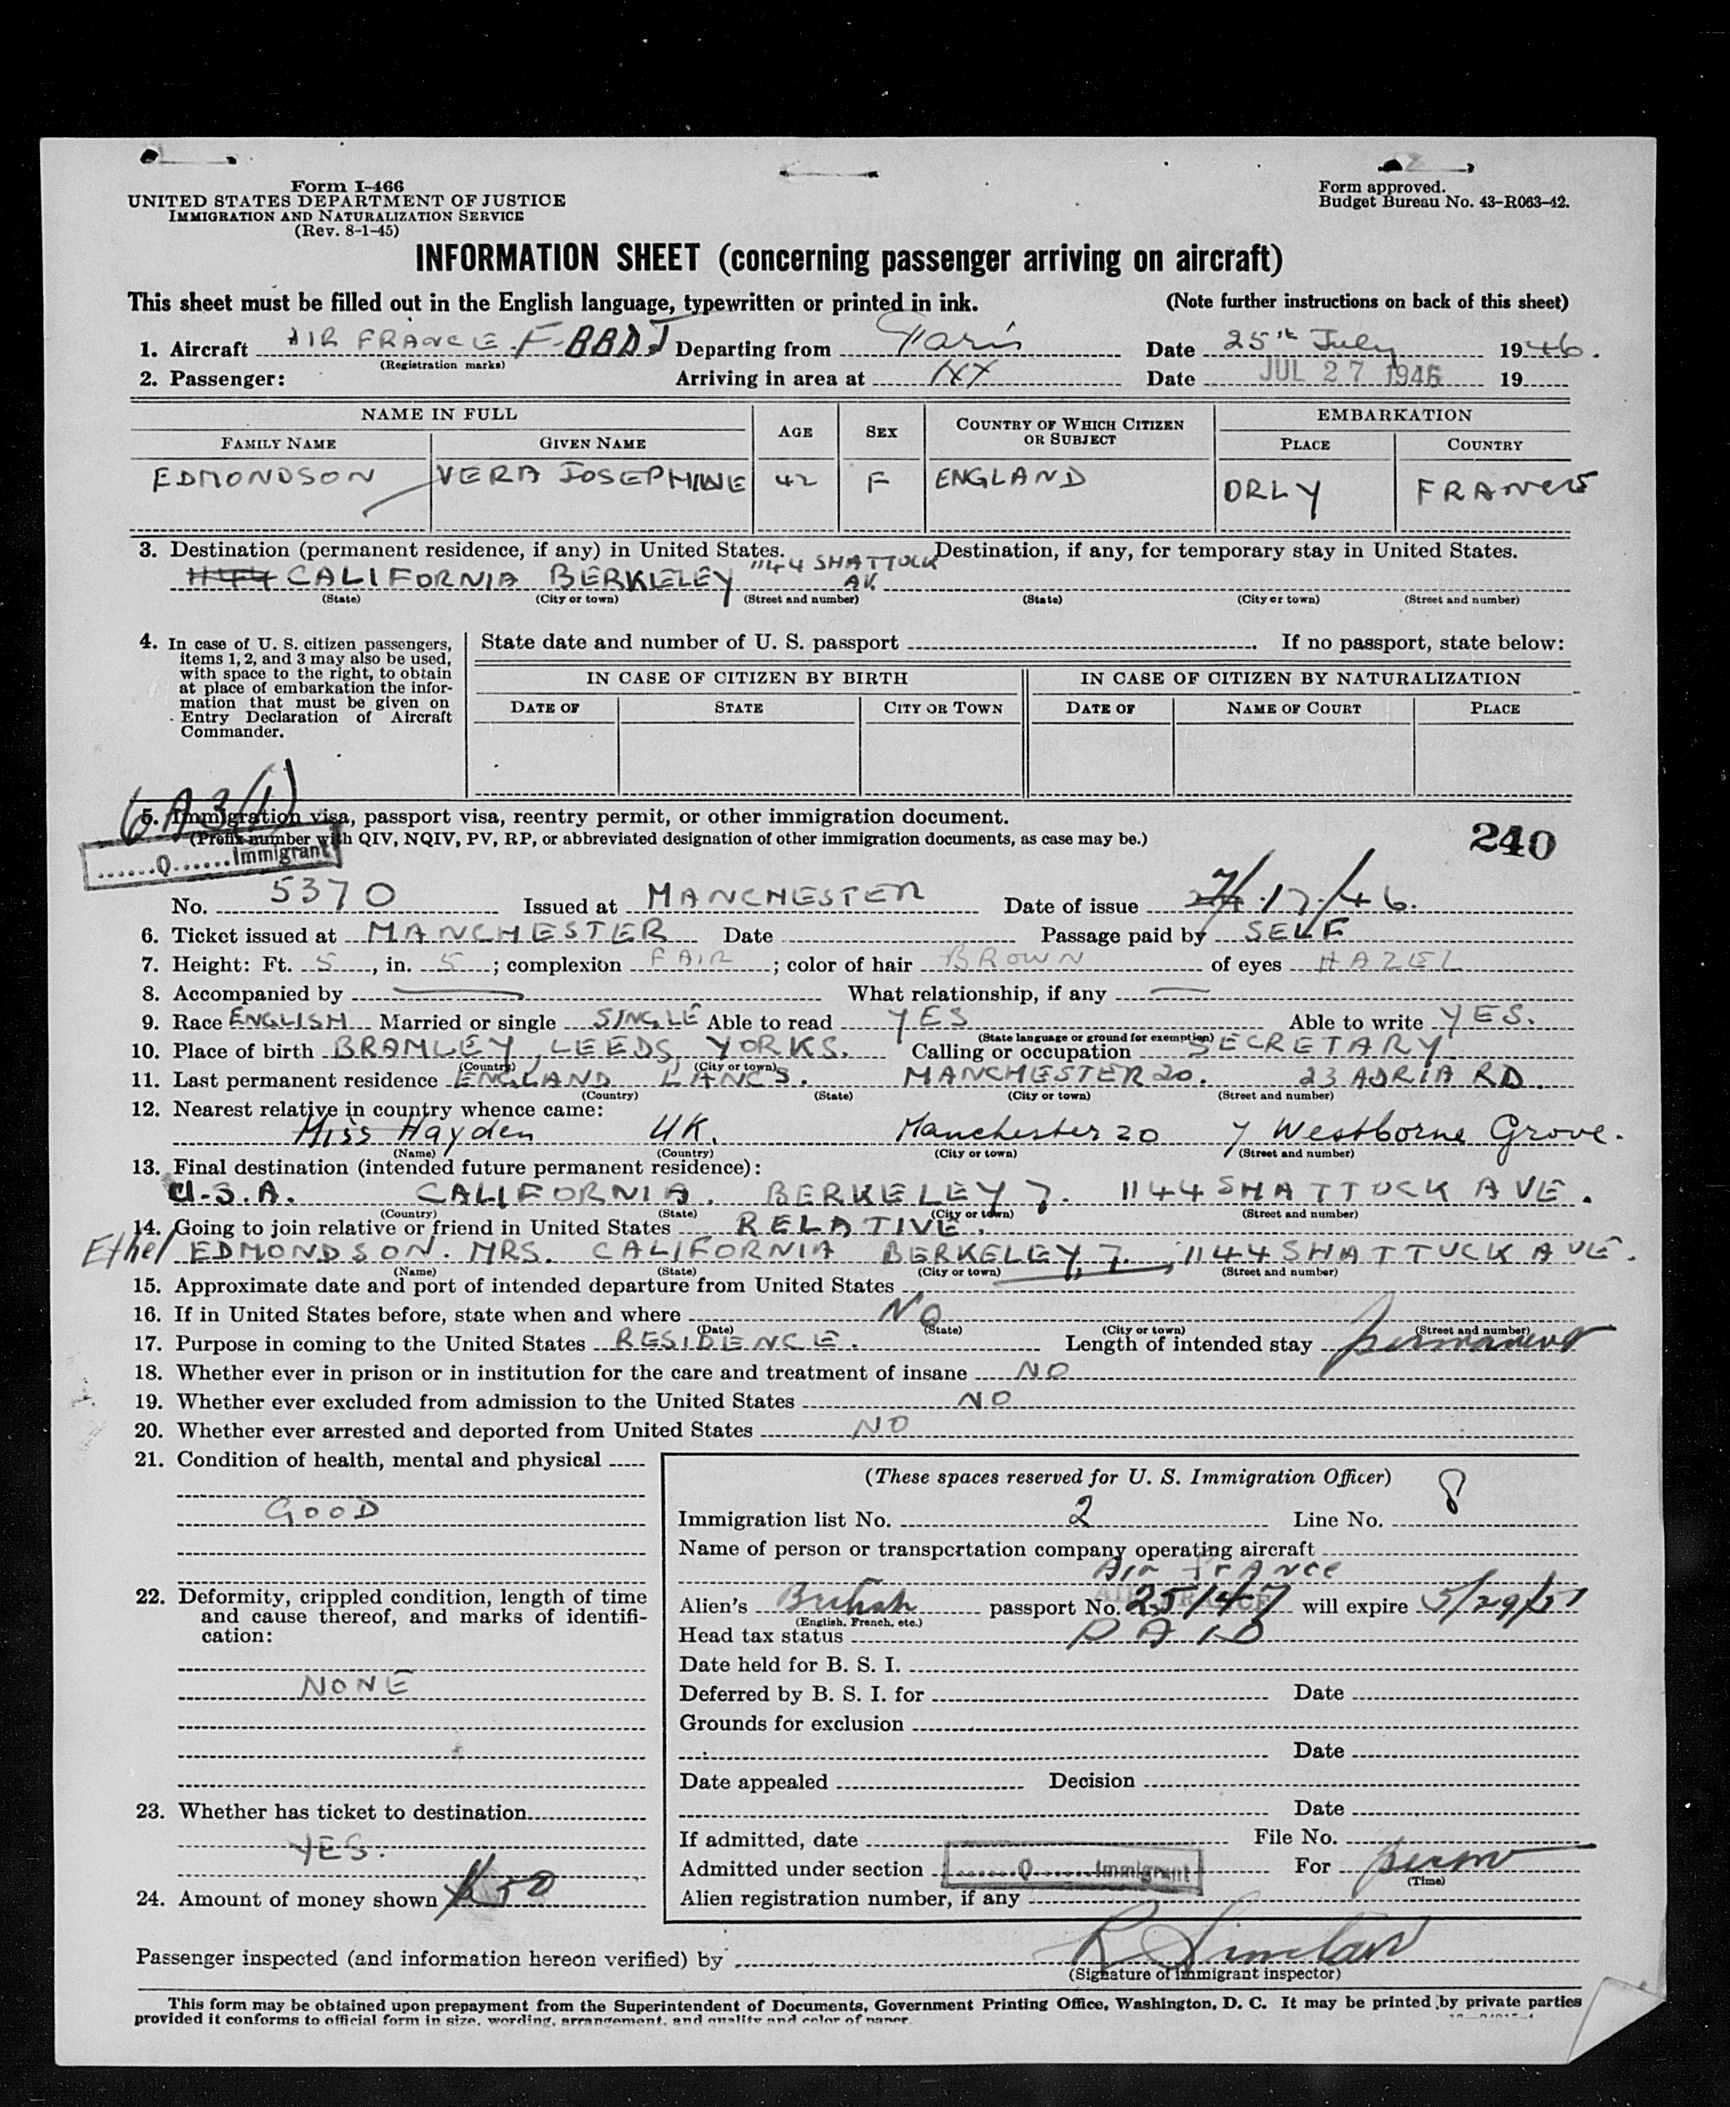 Form I-466
UNITED STATES DEPARTMENT OF JUSTICE
IMMIGRATION AND NATURALIZATION SERVICE
(Rev. 8-1-45)
Form approved.
Budget Bureau No. 43-R063-42.
INFORMATION SHEET (concerning passenger arriving on aircraft)
This sheet must be filled out in the English language, typewritten or printed in ink. (Note further instructions on back of this sheet)
1. Aircraft AIR FRANCE F-BBDJ Departing from Paris Date 25th July 1946.
(Registration marks)
2. Passenger: Arriving in area at Date JUL 27 1946 19
NAME IN FULL AGE SEX COUNTRY OF WHICH CITIZEN OR SUBJECT EMBARKATION
FAMILY NAME GIVEN NAME PLACE COUNTRY
EDMONDSON VERA JOSEPHINE 42 F ENGLAND ORLY FRANCE
3. Destination (permanent residence, if any) in United States. Destination, if any, for temporary stay in United States.
1144 CALIFORNIA BERKELEY 1144 SHATTUCK AV.
(State) (City or town) (Street and number) (State) (City or town) (Street and number)
4. In case of U. S. citizen passengers, items 1, 2, and 3 may also be used, with space to the right, to obtain at place of embarkation the information that must be given on Entry Declaration of Aircraft Commander.
State date and number of U. S. passport If no passport, state below:
IN CASE OF CITIZEN BY BIRTH IN CASE OF CITIZEN BY NATURALIZATION
DATE OF STATE CITY OR TOWN DATE OF NAME OF COURT PLACE
6A3(1)
5. Immigration visa, passport visa, reentry permit, or other immigration document.
(Prefix number with QIV, NQIV, PV, RP, or abbreviated designation of other immigration documents, as case may be.)
240
Q Immigrant
No. 5370 Issued at MANCHESTER Date of issue 17/46.
6. Ticket issued at MANCHESTER Date Passage paid by SELF
7. Height: Ft. 5, in. 5; complexion FAIR; color of hair BROWN of eyes HAZEL
8. Accompanied by — What relationship, if any —
9. Race ENGLISH Married or single SINGLE Able to read YES Able to write YES.
(State language or ground for exemption)
10. Place of birth BRAMLEY, LEEDS, YORKS. Calling or occupation SECRETARY
(Country) (City or town)
11. Last permanent residence ENGLAND LANCS. MANCHESTER 20. 23 ADRIA RD.
(Country) (State) (City or town) (Street and number)
12. Nearest relative in country whence came:
Miss Hayden UK. Manchester 20 7 Westborne Grove.
(Name) (Country) (City or town) (Street and number)
13. Final destination (intended future permanent residence):
U.S.A. CALIFORNIA. BERKELEY 7. 1144 SHATTUCK AVE.
(Country) (State) (City or town) (Street and number)
14. Going to join relative or friend in United States RELATIVE.
Ethel EDMONDSON. MRS. CALIFORNIA BERKELEY, 7. 1144 SHATTUCK AVE.
(Name) (State) (City or town) (Street and number)
15. Approximate date and port of intended departure from United States
16. If in United States before, state when and where NO
(Date) (State) (City or town) (Street and number)
17. Purpose in coming to the United States RESIDENCE. Length of intended stay permanent
18. Whether ever in prison or in institution for the care and treatment of insane NO
19. Whether ever excluded from admission to the United States NO
20. Whether ever arrested and deported from United States NO
21. Condition of health, mental and physical
GOOD
22. Deformity, crippled condition, length of time and cause thereof, and marks of identification:
NONE
23. Whether has ticket to destination
YES.
24. Amount of money shown 50
(These spaces reserved for U. S. Immigration Officer)
Immigration list No. 2 Line No. 8
Name of person or transportation company operating aircraft
Air France
AIR FRANCE
Alien's British passport No. 25147 will expire 5/29/51
(English, French, etc.)
Head tax status PAID
Date held for B. S. I.
Deferred by B. S. I. for Date
Grounds for exclusion
Date
Date appealed Decision
Date
If admitted, date File No.
Admitted under section Q Immigrant For perm
(Time)
Alien registration number, if any
Passenger inspected (and information hereon verified) by R Sinclair
(Signature of immigrant inspector)
This form may be obtained upon prepayment from the Superintendent of Documents, Government Printing Office, Washington, D. C. It may be printed by private parties
provided it conforms to official form in size, wording, arrangement, and quality and color of paper.